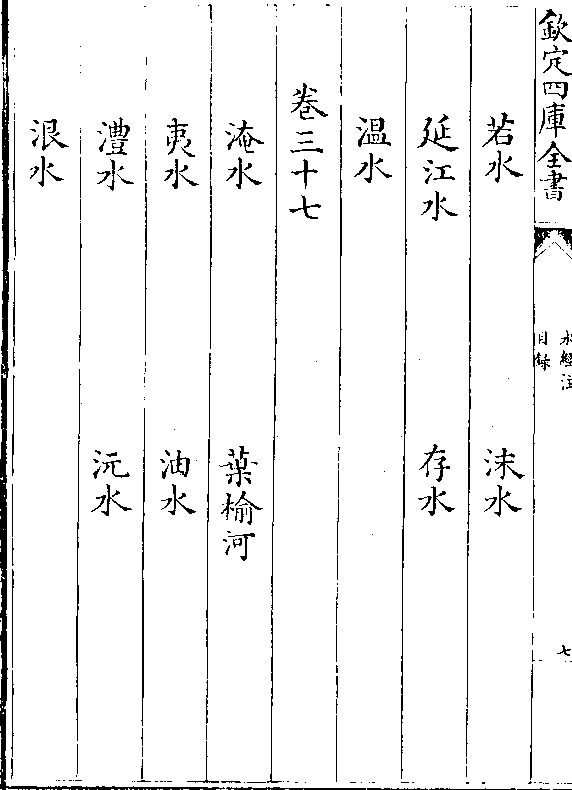 欽定四庫全書
水經注
目錄
七
若水 沫水
延江水 存水
溫水
卷三十七
淹水 葉榆河
夷水 油水
澧水 沅水
泿水